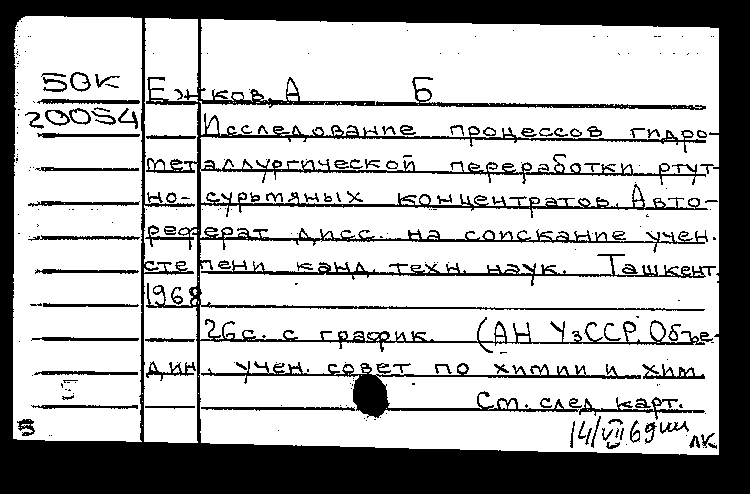 БОК Ежков, А Б
20054 Исследование процессов гидро-
металлургической переработки ртут-
но-сурьмяных концентратов. Авто-
реферат дисс. на соискание учен.
степени канд. техн. наук. Ташкент.
1968.
26 с. с график. (АН УзССР. Объе-
дин. учен. совет по химии и хим.
5 См. след карт.
5 14/VII 69 лк